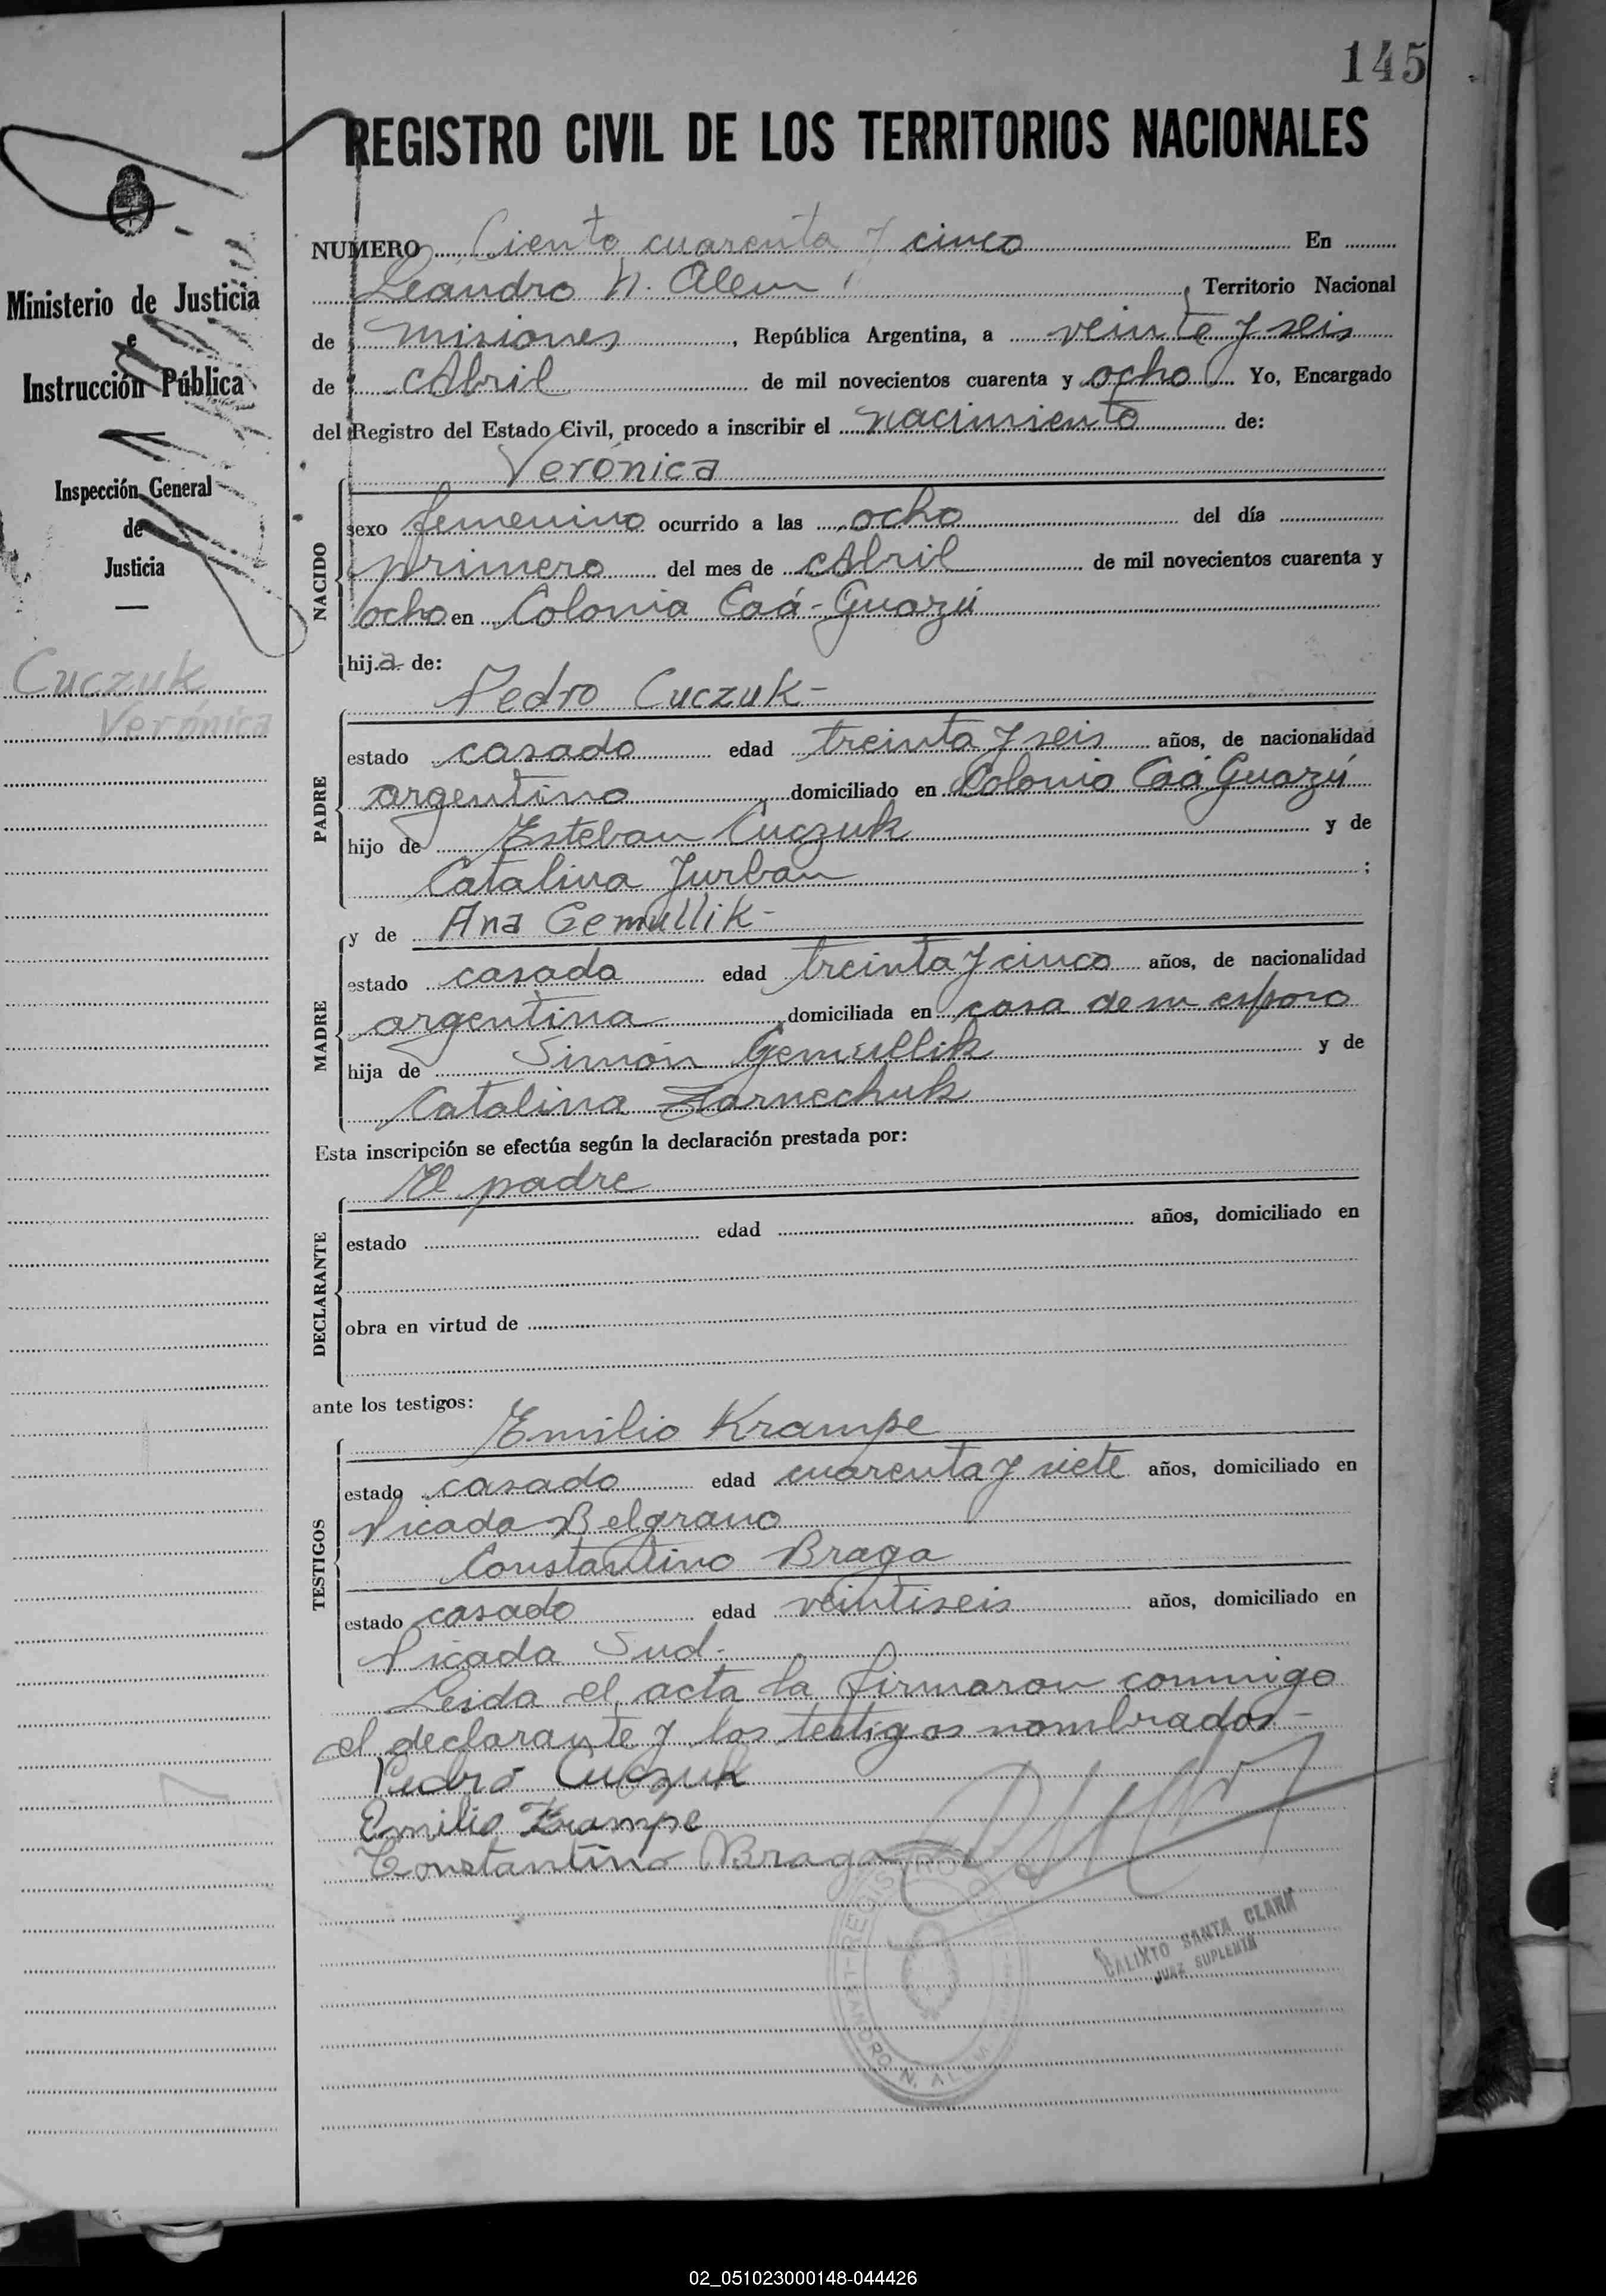 145
REGISTRO CIVIL DE LOS TERRITORIOS NACIONALES
Ministerio de Justicia
e
Instrucción Pública
Inspección General
de
Justicia
Cuczuk
Verónica
NUMERO Ciento cuarenta y cinco En
Leandro N. Alem, Territorio Nacional
de misiones, República Argentina, a veinte y seis
de Abril de mil novecientos cuarenta y ocho Yo, Encargado
del Registro del Estado Civil, procedo a inscribir el nacimiento de:
Verónica
NACIDO
sexo femenino ocurrido a las ocho del día
primero del mes de Abril de mil novecientos cuarenta y
ocho en Colonia Caá-Guazú
hija de:
Pedro Cuczuk-
PADRE
estado casado edad treinta y seis años, de nacionalidad
argentino domiciliado en Colonia Caá Guazú
hijo de Esteban Cuczuk y de
Catalina Jurban ;
y de Ana Gemullik-
MADRE
estado casada edad treinta y cinco años, de nacionalidad
argentina, domiciliada en casa de su esposo
hija de Simón Gemullik y de
Catalina Zarnechuk
Esta inscripción se efectúa según la declaración prestada por:
El padre
DECLARANTE
estado edad años, domiciliado en
obra en virtud de
ante los testigos:
Emilio Krampe
TESTIGOS
estado casado edad cuarenta y siete años, domiciliado en
Picada Belgrano
Constantino Braga
estado casado edad veintiseis años, domiciliado en
Picada Sud.
Leida el acta la firmaron conmigo
el declarante y los testigos nombrados-
Pedro Cuczuk
Emilio Krampe
Constantino Braga
REGISTRO
LEANDRO N. ALEM
CALIXTO SANTA CLARA
JUEZ SUPLENTE
02_051023000148-044426